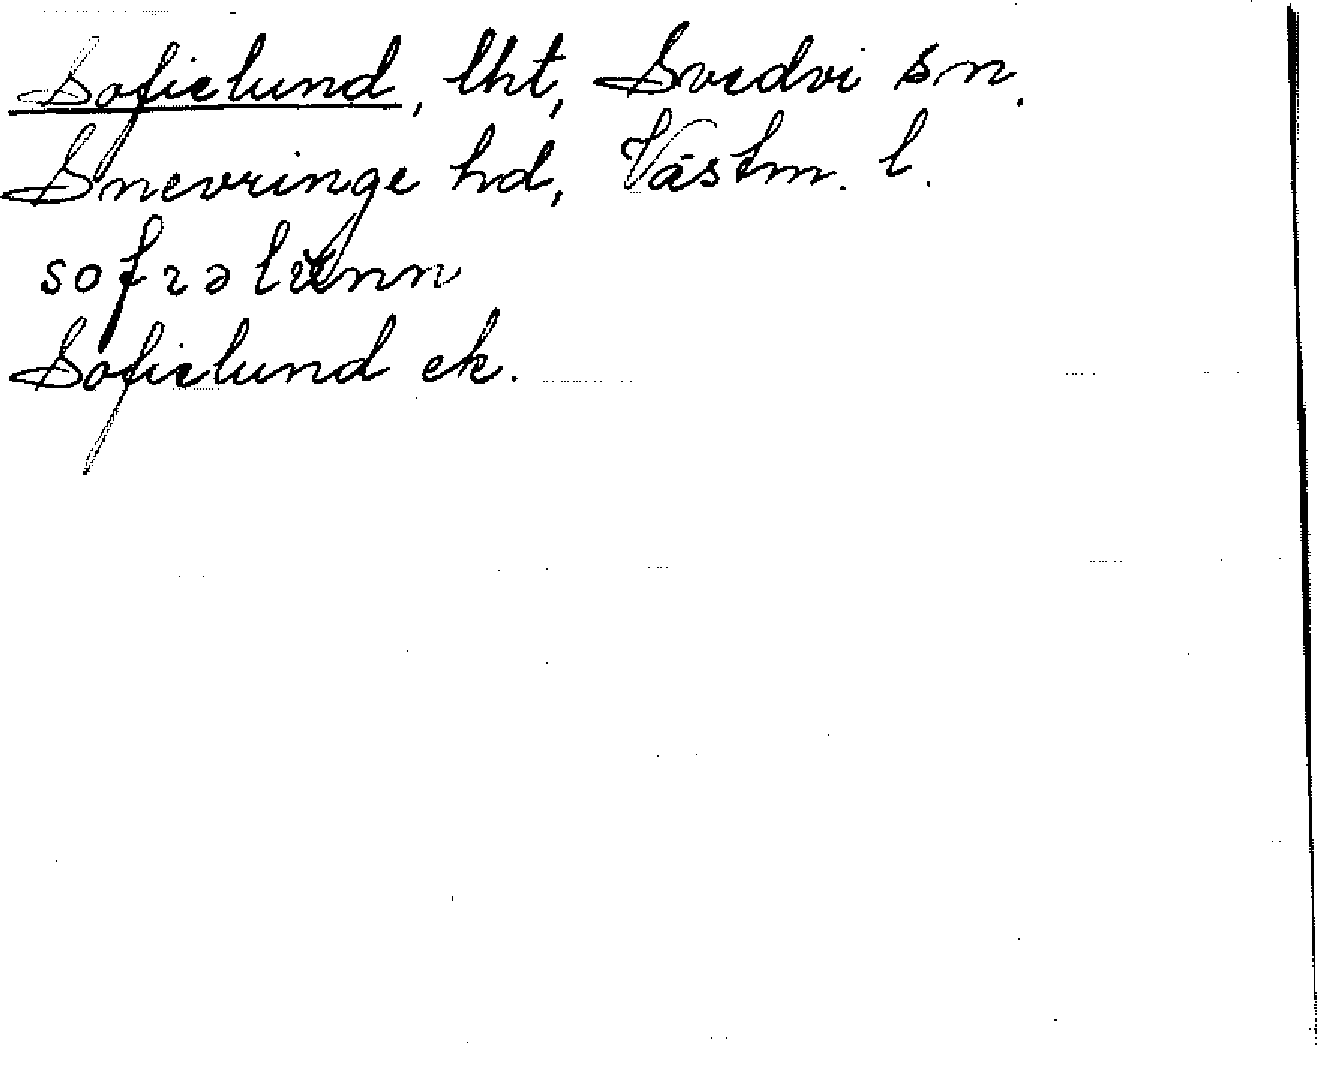 Sofielund, lht, Svedvi sn.
Snevringe hd, Västm. l.
Sofielund ek.